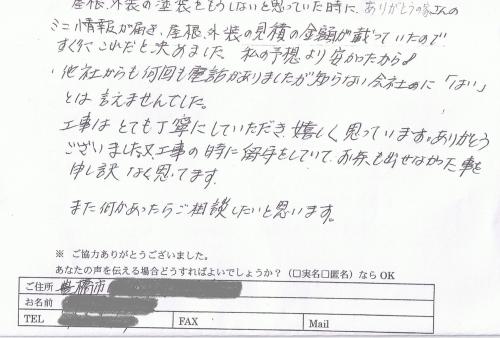 屋根、外装の塗装をもうしないと思っていた時に、ありがとうの家さんの
ミニ情報が届き、屋根、外装の見積の金額が載っていたので
すぐにこれだと決めました。私の予想より安かたから。
他社からも何回も電話がありましたが知らない会社のに「はい」
とは言えませんでした。
工事はとても丁寧にしていただき、嬉しく思っています。ありがとう
ございました。又、工事の時に留守をしていて、お茶も出せなかった事を
申し訳なく思てます。
また何かあったらご相談したいと思います。
※ ご協力ありがとうございました。
あなたの声を伝える場合どうすればよいでしょうか？（□実名□匿名）なら OK
ご住所 豊橋市
お名前
TEL FAX Mail